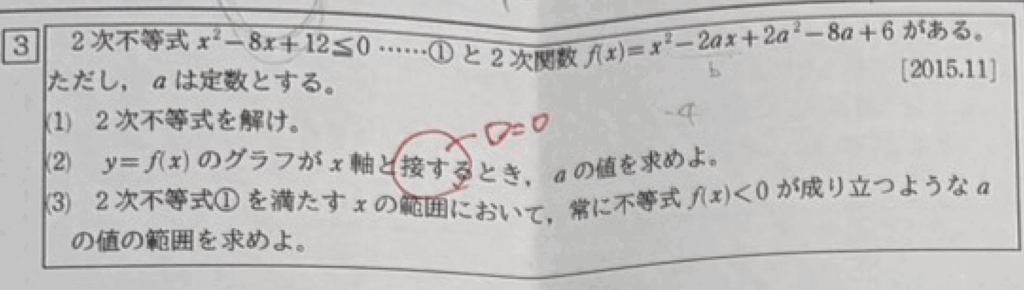 3 2次不等式 x²−8x+12≦0 ……① と2次関数 f(x)=x²−2ax+2a²−8a+6 がある。
ただし，aは定数とする。 [2015.11]
b
-4
(1) 2次不等式を解け。
D=0
(2) y=f(x) のグラフが x 軸と接するとき，a の値を求めよ。
(3) 2次不等式①を満たす x の範囲において，常に不等式 f(x)<0 が成り立つような a
の値の範囲を求めよ。